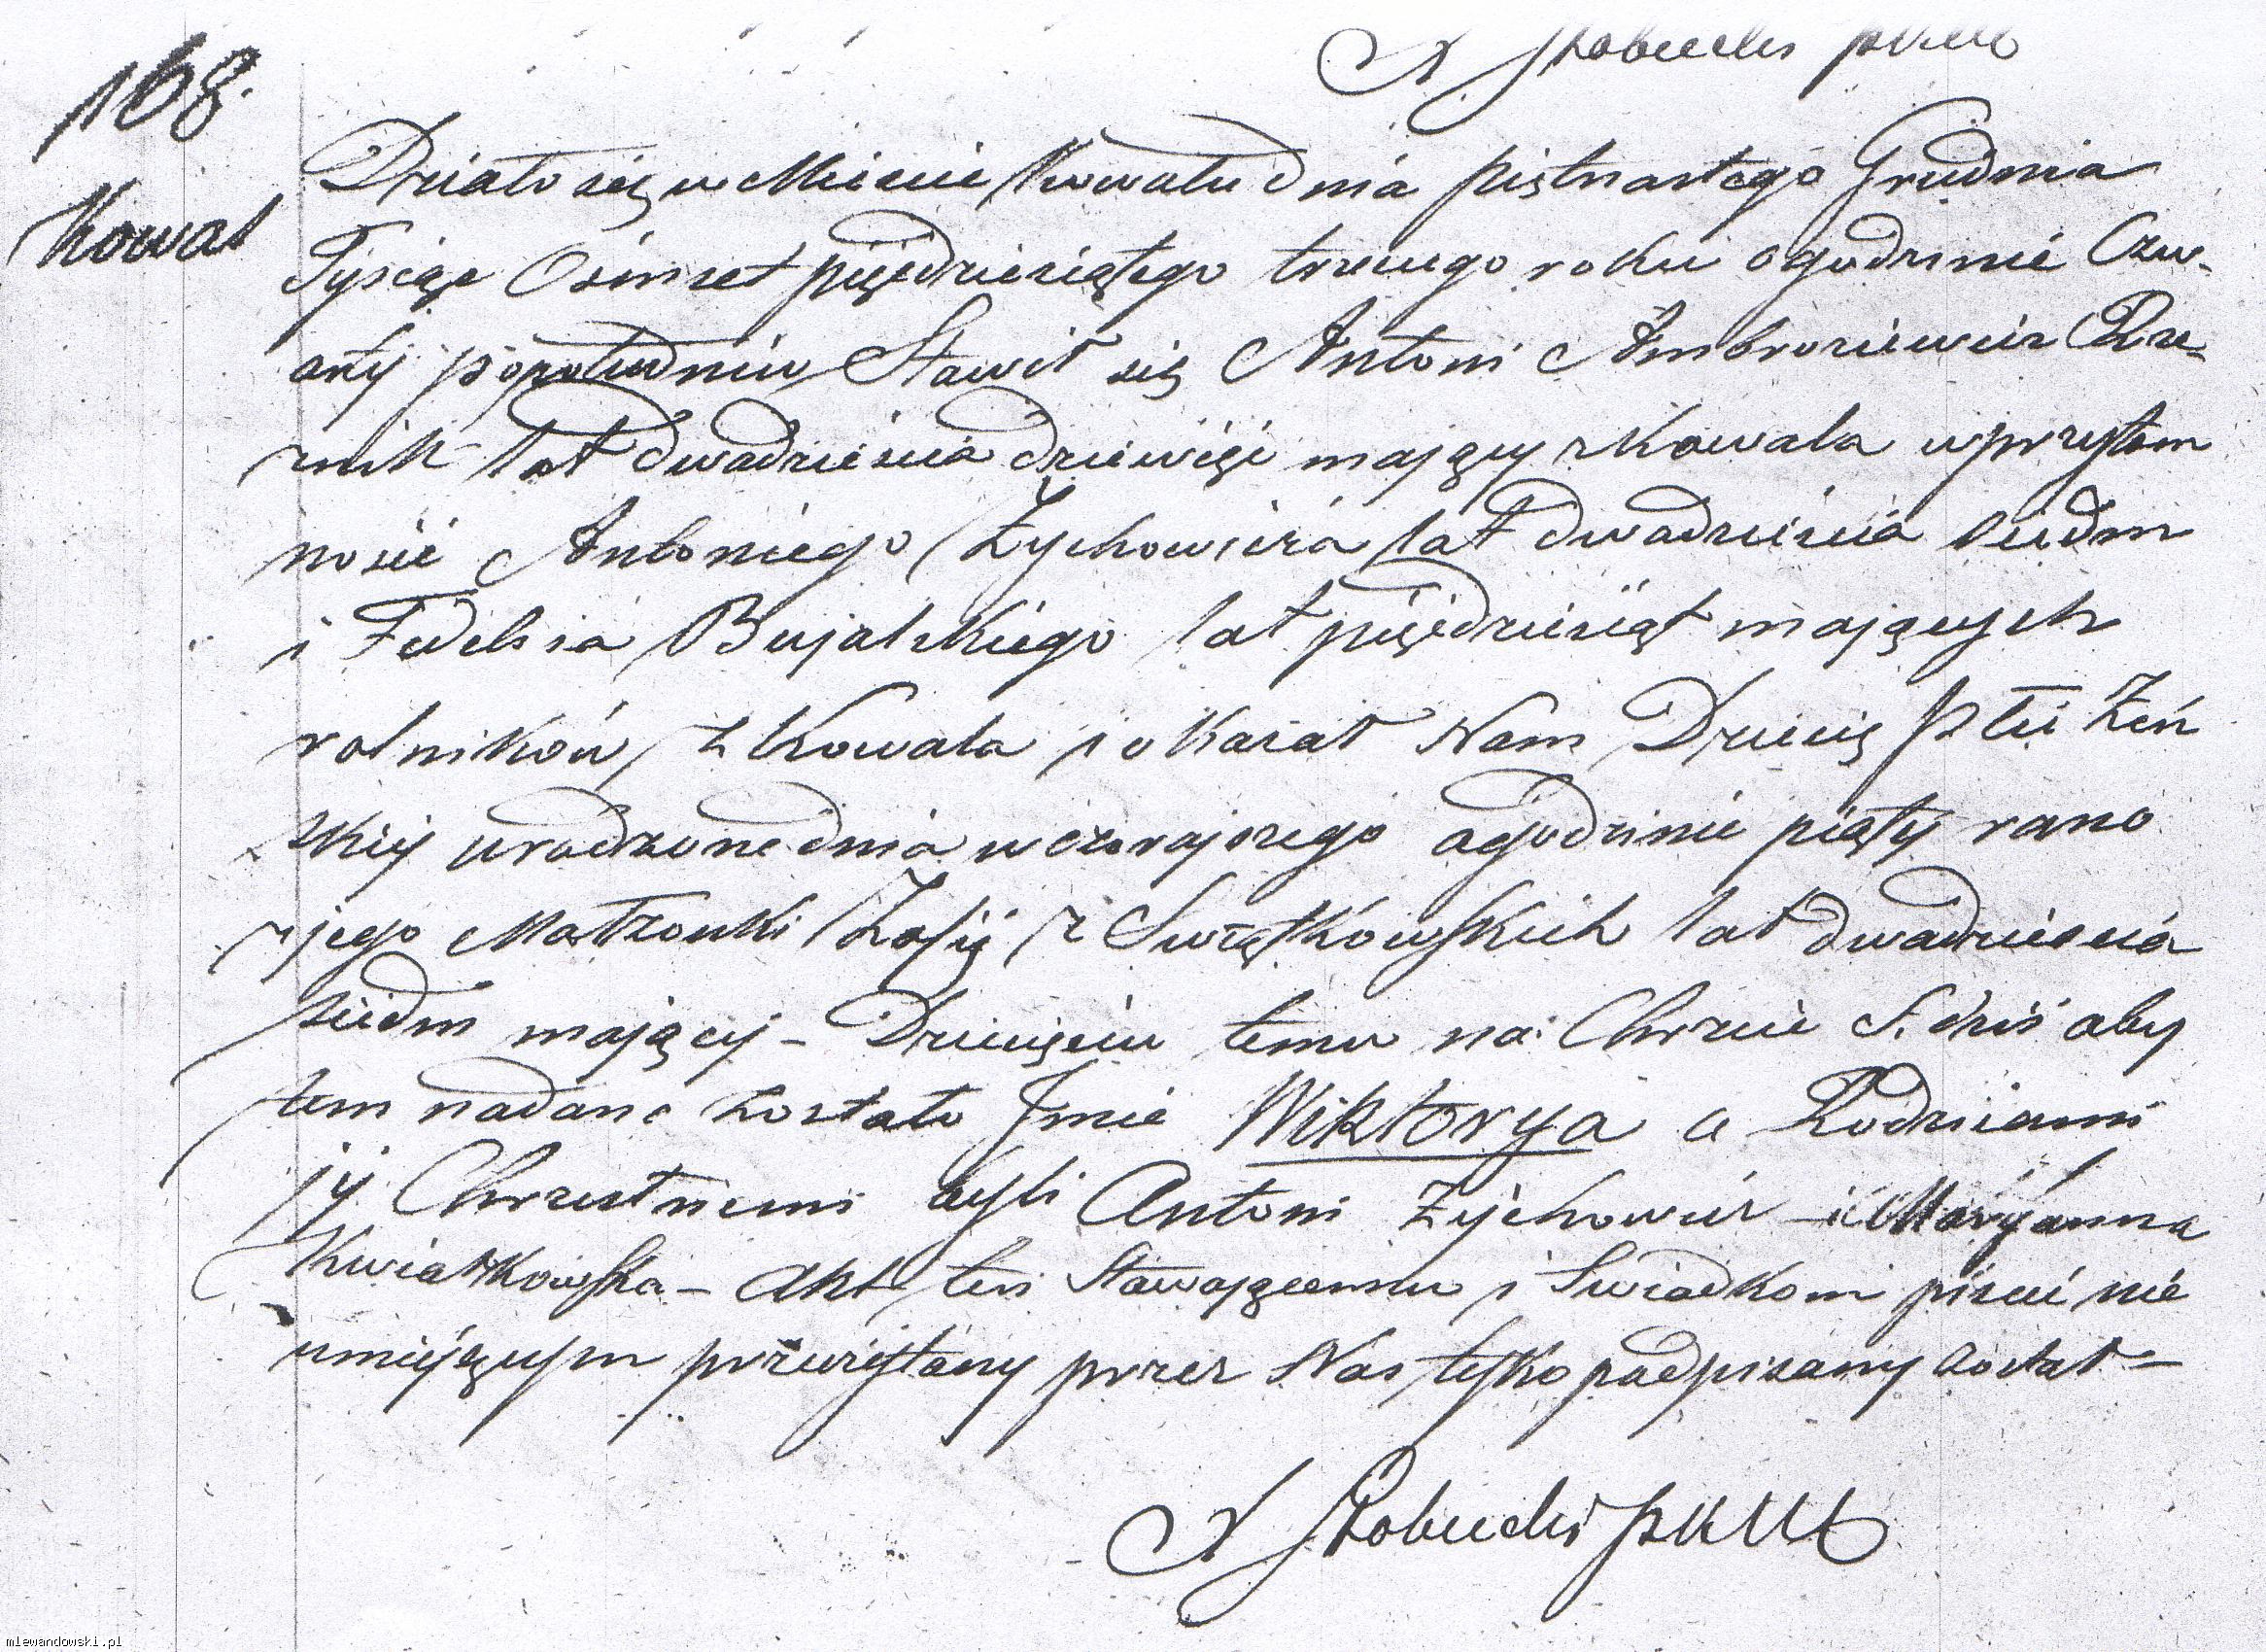 168.
Kowal
Działo się w Mieście Kowalu dnia piętnastego Grudnia
Tysiąc Ośmset pięćdziesiątego trzeciego roku o godzinie Czw-
arty popołudniu Stawił się Antoni Ambroziewicz Rze-
znik lat dwadzieścia dziewięć mający z Kowala w przytom
ności Antoniego Zychowicza lat dwadzieścia siedm
i Bujalskiego lat pięćdziesiąt mających
rolników z Kowala i okazał Nam Dziecię płci Żeń
skiej urodzone dnia wczorajszego o godzinie piąty rano
z jego Małżonki Zofij z Swiątkowskich lat dwadzieścia
siedm mający - Dziecięciu temu na Chrzcie S. dziś odby
tem nadane zostało Imie Wiktorya a Rodzicami
jy Chrzestnemi byli Antoni Zychowicz i Maryanna
Kwiatkowska - Akt ten Stawającemu i Swiadkom pisać nie
umiejącym przeczytany przez Nas tylko podpisany został -
mlewandowski.pl